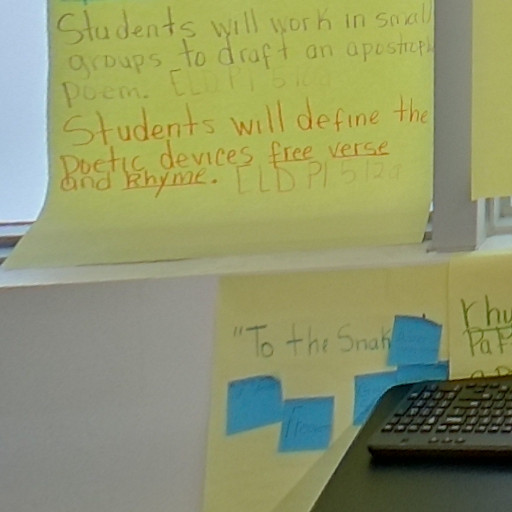 Students will work in small
groups to draft an apostroph
poem. [ELD PI 5
Students will define the
Poetic devices free verse
and Rhyme. [ELD PI 5 12a
"To the Snak
rhy